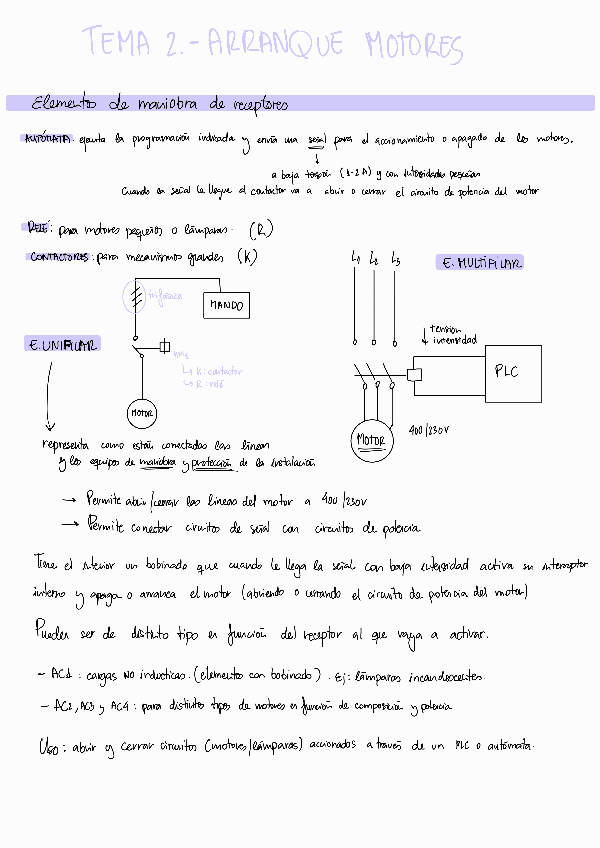 TEMA 2.- ARRANQUE MOTORES
Elementos de maniobra de receptores
AUTÓMATA: ejecuta la programación indicada y envía una señal para el accionamiento o apagado de los motores.
a baja tensión (1-2A) y con intensidades pequeñas
Cuando esa señal le llegue al contactor va a abrir o cerrar el circuito de potencia del motor
RELÉ: para motores pequeños o lámparas. (R)
CONTACTORES: para mecanismos grandes (K)
L1 L2 L3
E. MULTIFILAR
trifásica
MANDO
tension
intensidad
E. UNIFILAR
K: contactor
R: relé
PLC
MOTOR
MOTOR
400/230V
representa como están conectadas las líneas
y los equipos de maniobra y protección de la instalación
→ Permite abrir/cerrar las líneas del motor a 400/230V
→ Permite conectar circuitos de señal con circuitos de potencia
Tiene el interior un bobinado que cuando le llega la señal con baja intensidad activa su interruptor
interno y apaga o arranca el motor (abriendo o cerrando el circuito de potencia del motor)
Pueden ser de distinto tipo en función del receptor al que vaya a activar.
- AC1: cargas NO inductivas. (elementos con bobinado). Ej: lámparas incandescentes.
- AC2, AC3 y AC4: para distintos tipos de motores en función de composición y potencia
USO: abrir y cerrar circuitos (motores/lámparas) accionados a través de un PLC o autómata.